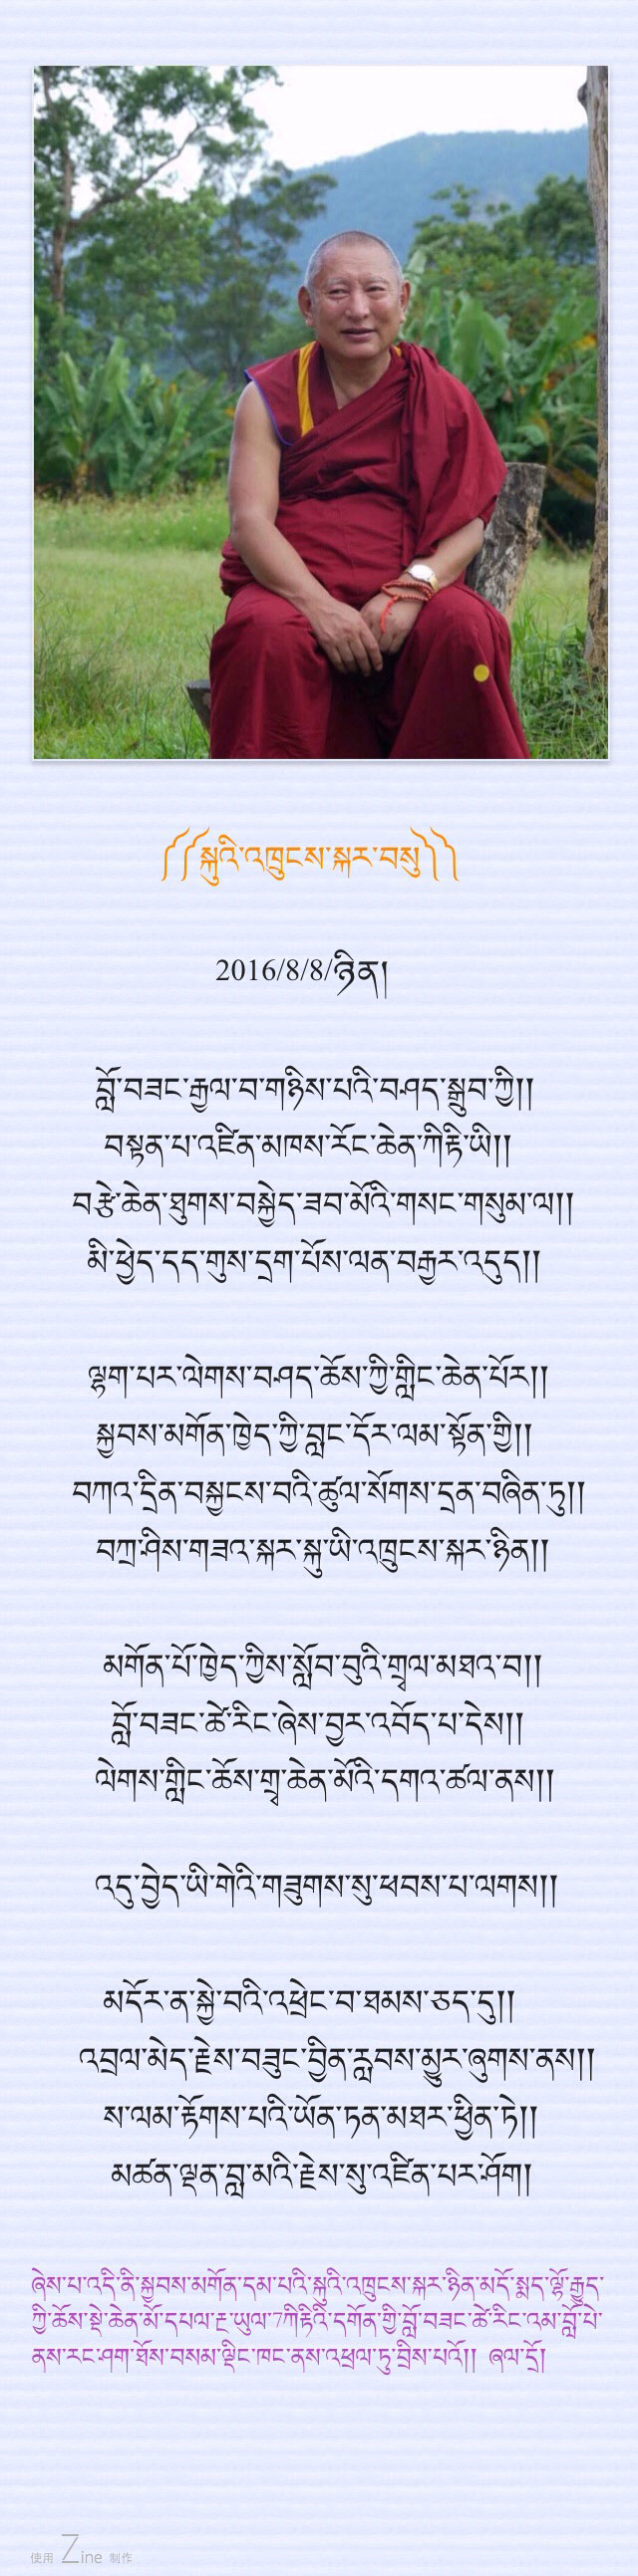 ༼༼སྐུའི་འཁྲུངས་སྐར་བསུ༽༽
2016/8/8/ཉིན།
བློ་བཟང་རྒྱལ་བ་གཉིས་པའི་བཤད་སྒྲུབ་ཀྱི།།
བསྟན་པ་འཛིན་མཁས་རོང་ཆེན་ཀིརྟི་ཡི།།
བརྩེ་ཆེན་ཐུགས་བསྐྱེད་ཟབ་མོའི་གསང་གསུམ་ལ།།
མི་ཕྱེད་དད་གུས་དྲག་པོས་ལན་བརྒྱར་འདུད།།
ལྷག་པར་ལེགས་བཤད་ཆོས་ཀྱི་གླིང་ཆེན་པོར།།
སྐྱབས་མགོན་ཁྱེད་ཀྱི་བླང་དོར་ལམ་སྟོན་གྱི།།
བཀའ་དྲིན་བསྐྱངས་བའི་ཚུལ་སོགས་དྲན་བཞིན་ཏུ།།
བཀྲ་ཤིས་གཟའ་སྐར་སྐུ་ཡི་འཁྲུངས་སྐར་ཉིན།།
མགོན་པོ་ཁྱེད་ཀྱིས་སློབ་བུའི་གྲྭལ་མཐའ་བ།།
བློ་བཟང་ཚེ་རིང་ཞེས་བྱར་འབོད་པ་དེས།།
ལེགས་གླིང་ཆོས་གྲྭ་ཆེན་མོའི་དགའ་ཚལ་ནས།།
འདུ་བྱེད་ཡི་གེའི་གཟུགས་སུ་ཕབས་པ་ལགས།།
མདོར་ན་སྐྱེ་བའི་འཕྲེང་བ་ཐམས་ཅད་དུ།།
འབྲལ་མེད་རྗེས་བཟུང་བྱིན་རླབས་མྱུར་ཞུགས་ནས།།
ས་ལམ་རྟོགས་པའི་ཡོན་ཏན་མཐར་ཕྱིན་ཏེ།།
མཚན་ལྡན་བླ་མའི་རྗེས་སུ་འཛིན་པར་ཤོག།
ཞེས་པ་འདི་ནི་སྐྱབས་མགོན་དམ་པའི་སྐུའི་འཁྲུངས་སྐར་ཉིན་མདོ་སྨད་ལྷོ་རྒྱུད་
ཀྱི་ཆོས་སྡེ་ཆེན་མོ་དཔལ་རྔ་ཡུལ་7ཀིརྟིའི་དགོན་གྱི་བློ་བཟང་ཚེ་རིང་འམ་བློ་པེ་
ནས་རང་ཤག་ཐོས་བསམ་ལྡིང་ཁང་ནས་འཕྲལ་ཏུ་བྲིས་པའོ།། ཞལ་དྲོ།
使用 Zine 制作